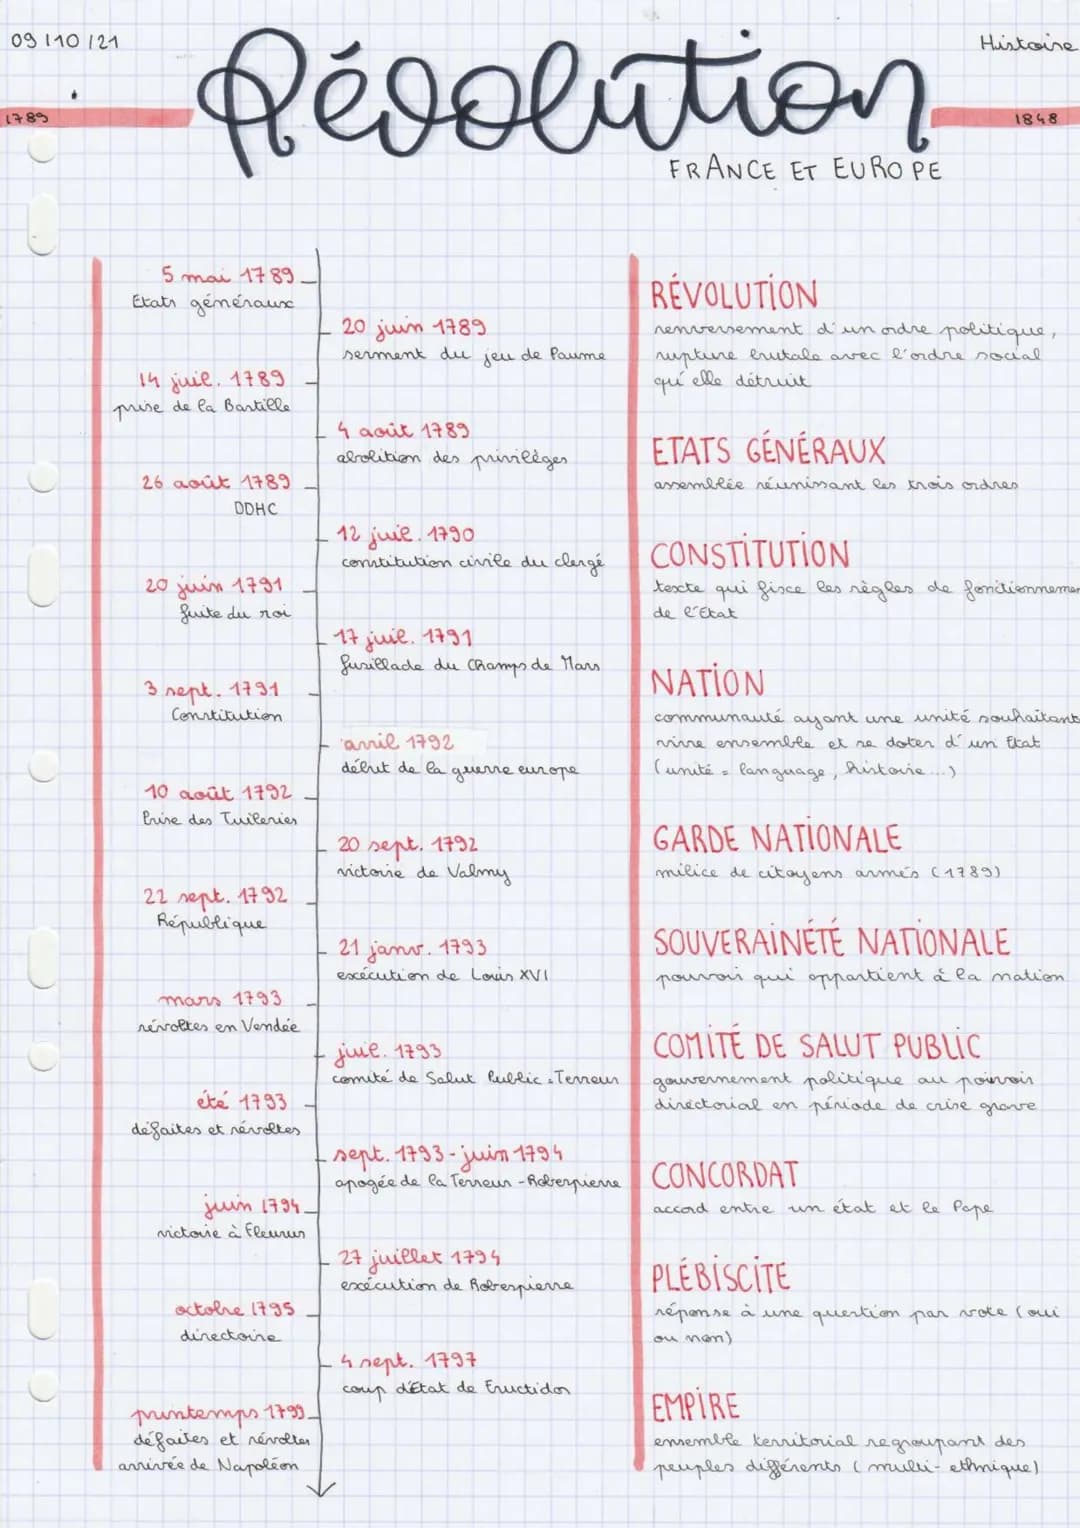 09/10/21
Histoire
Révolution
1789
1848
FRANCE ET EUROPE
5 mai 1789
Etats généraux
20 juin 1789
serment du jeu de Paume
14 juil. 1789
prise de la Bastille
4 août 1789
abolition des privilèges
26 août 1789
DDHC
12 juil. 1790
constitution civile du clergé
20 juin 1791
fuite du roi
17 juil. 1791
fusillade du Champs de Mars
3 sept. 1791
Constitution
avril 1792
début de la guerre europe
10 août 1792
Prise des Tuileries
20 sept. 1792
victoire de Valmy
22 sept. 1792
République
21 janv. 1793
exécution de Louis XVI
mars 1793
révoltes en Vendée
juil. 1793
comité de Salut Public = Terreur
été 1793
défaites et révoltes
sept. 1793 - juin 1794
apogée de la Terreur - Roberpierre
juin 1794
victoire à Fleurus
27 juillet 1794
exécution de Roberpierre
octobre 1795
directoire
4 sept. 1797
coup d'État de Fructidor
printemps 1799
défaites et révoltes
arrivée de Napoléon
RÉVOLUTION
renversement d'un ordre politique,
rupture brutale avec l'ordre social
qu'elle détruit
ETATS GÉNÉRAUX
assemblée réunissant les trois ordres
CONSTITUTION
texte qui fixe les règles de fonctionnemen
de l'État
NATION
communauté ayant une unité souhaitant
vivre ensemble et se doter d'un État
(unité = language, histoire...)
GARDE NATIONALE
milice de citoyens armés (1789)
SOUVERAINÉTÉ NATIONALE
pouvoir qui appartient à la nation
COMITÉ DE SALUT PUBLIC
gouvernement politique au pouvoir
directorial en période de crise grave
CONCORDAT
accord entre un état et le Pape
PLÉBISCITE
réponse à une question par vote (oui
ou non)
EMPIRE
ensemble territorial regroupant des
peuples différents (multi-ethnique)